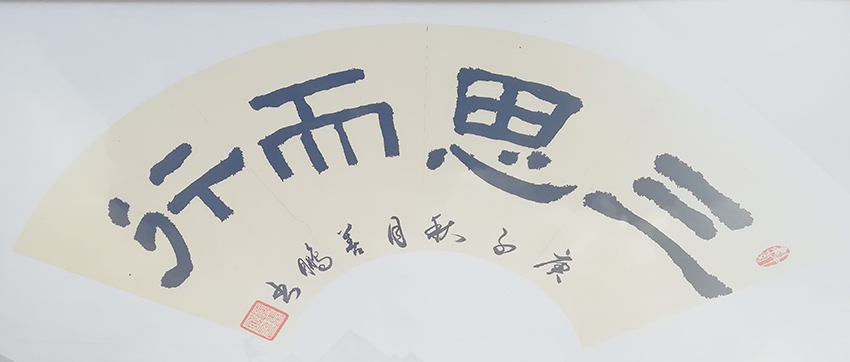 三思而行
庚子秋月善鹏书